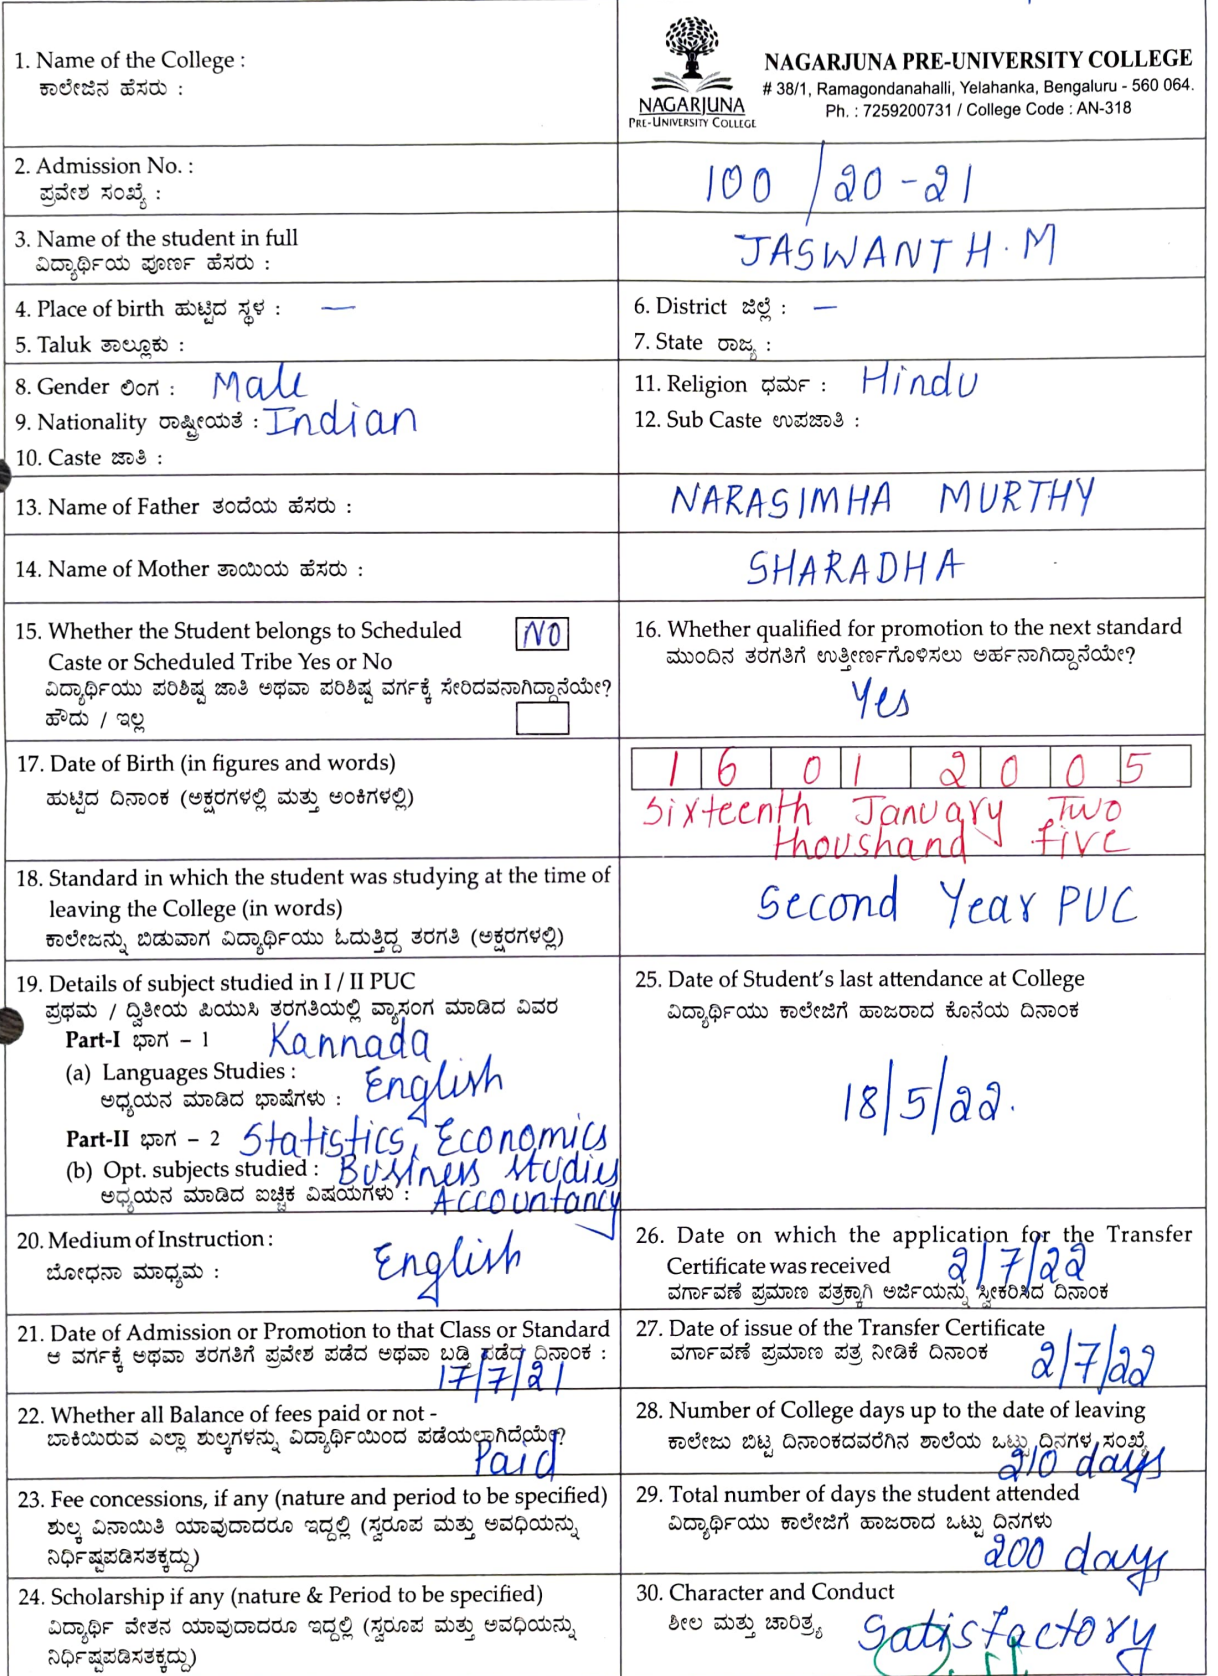 1. Name of the College :
ಕಾಲೇಜಿನ ಹೆಸರು :
NAGARJUNA
PRE-UNIVERSITY COLLEGE
NAGARJUNA PRE-UNIVERSITY COLLEGE
# 38/1, Ramagondanahalli, Yelahanka, Bengaluru - 560 064.
Ph. : 7259200731 / College Code : AN-318
2. Admission No. :
ಪ್ರವೇಶ ಸಂಖ್ಯೆ :
100 / 20-21
3. Name of the student in full
ವಿದ್ಯಾರ್ಥಿಯ ಪೂರ್ಣ ಹೆಸರು :
JASWANTH.M
4. Place of birth ಹುಟ್ಟಿದ ಸ್ಥಳ : —
5. Taluk ತಾಲ್ಲೂಕು :
6. District ಜಿಲ್ಲೆ : —
7. State ರಾಜ್ಯ :
8. Gender ಲಿಂಗ : Male
9. Nationality ರಾಷ್ಟ್ರೀಯತೆ : Indian
10. Caste ಜಾತಿ :
11. Religion ಧರ್ಮ : Hindu
12. Sub Caste ಉಪಜಾತಿ :
13. Name of Father ತಂದೆಯ ಹೆಸರು :
NARASIMHA MURTHY
14. Name of Mother ತಾಯಿಯ ಹೆಸರು :
SHARADHA
15. Whether the Student belongs to Scheduled
Caste or Scheduled Tribe Yes or No
NO
ವಿದ್ಯಾರ್ಥಿಯು ಪರಿಶಿಷ್ಟ ಜಾತಿ ಅಥವಾ ಪರಿಶಿಷ್ಟ ವರ್ಗಕ್ಕೆ ಸೇರಿದವನಾಗಿದ್ದಾನೆಯೇ?
ಹೌದು / ಇಲ್ಲ
16. Whether qualified for promotion to the next standard
ಮುಂದಿನ ತರಗತಿಗೆ ಉತ್ತೀರ್ಣಗೊಳಿಸಲು ಅರ್ಹನಾಗಿದ್ದಾನೆಯೇ?
Yes
17. Date of Birth (in figures and words)
ಹುಟ್ಟಿದ ದಿನಾಂಕ (ಅಕ್ಷರಗಳಲ್ಲಿ ಮತ್ತು ಅಂಕಿಗಳಲ್ಲಿ)
1 6 0 1 2 0 0 5
Sixteenth January Two
thoushand five
18. Standard in which the student was studying at the time of
leaving the College (in words)
ಕಾಲೇಜನ್ನು ಬಿಡುವಾಗ ವಿದ್ಯಾರ್ಥಿಯು ಓದುತ್ತಿದ್ದ ತರಗತಿ (ಅಕ್ಷರಗಳಲ್ಲಿ)
Second Year PUC
19. Details of subject studied in I / II PUC
ಪ್ರಥಮ / ದ್ವಿತೀಯ ಪಿಯುಸಿ ತರಗತಿಯಲ್ಲಿ ವ್ಯಾಸಂಗ ಮಾಡಿದ ವಿವರ
Part-I ಭಾಗ – 1 Kannada
(a) Languages Studies : English
ಅಧ್ಯಯನ ಮಾಡಿದ ಭಾಷೆಗಳು :
Part-II ಭಾಗ – 2 Statistics, Economics
(b) Opt. subjects studied : Business studies
ಅಧ್ಯಯನ ಮಾಡಿದ ಐಚ್ಛಿಕ ವಿಷಯಗಳು : Accountancy
25. Date of Student's last attendance at College
ವಿದ್ಯಾರ್ಥಿಯು ಕಾಲೇಜಿಗೆ ಹಾಜರಾದ ಕೊನೆಯ ದಿನಾಂಕ
18/5/22.
20. Medium of Instruction :
ಬೋಧನಾ ಮಾಧ್ಯಮ :
English
26. Date on which the application for the Transfer
Certificate was received 2/7/22
ವರ್ಗಾವಣೆ ಪ್ರಮಾಣ ಪತ್ರಕ್ಕಾಗಿ ಅರ್ಜಿಯನ್ನು ಸ್ವೀಕರಿಸಿದ ದಿನಾಂಕ
21. Date of Admission or Promotion to that Class or Standard
ಆ ವರ್ಗಕ್ಕೆ ಅಥವಾ ತರಗತಿಗೆ ಪ್ರವೇಶ ಪಡೆದ ಅಥವಾ ಬಡ್ತಿ ಪಡೆದ ದಿನಾಂಕ :
17/7/21
27. Date of issue of the Transfer Certificate
ವರ್ಗಾವಣೆ ಪ್ರಮಾಣ ಪತ್ರ ನೀಡಿಕೆ ದಿನಾಂಕ
2/7/22
22. Whether all Balance of fees paid or not -
ಬಾಕಿಯಿರುವ ಎಲ್ಲಾ ಶುಲ್ಕಗಳನ್ನು ವಿದ್ಯಾರ್ಥಿಯಿಂದ ಪಡೆಯಲಾಗಿದೆಯೇ?
Paid
28. Number of College days up to the date of leaving
ಕಾಲೇಜು ಬಿಟ್ಟ ದಿನಾಂಕದವರೆಗಿನ ಶಾಲೆಯ ಒಟ್ಟು ದಿನಗಳ ಸಂಖ್ಯೆ
210 days
23. Fee concessions, if any (nature and period to be specified)
ಶುಲ್ಕ ವಿನಾಯಿತಿ ಯಾವುದಾದರೂ ಇದ್ದಲ್ಲಿ (ಸ್ವರೂಪ ಮತ್ತು ಅವಧಿಯನ್ನು
ನಿರ್ಧಿಷ್ಟಪಡಿಸತಕ್ಕದ್ದು)
29. Total number of days the student attended
ವಿದ್ಯಾರ್ಥಿಯು ಕಾಲೇಜಿಗೆ ಹಾಜರಾದ ಒಟ್ಟು ದಿನಗಳು
200 days
24. Scholarship if any (nature & Period to be specified)
ವಿದ್ಯಾರ್ಥಿ ವೇತನ ಯಾವುದಾದರೂ ಇದ್ದಲ್ಲಿ (ಸ್ವರೂಪ ಮತ್ತು ಅವಧಿಯನ್ನು
ನಿರ್ಧಿಷ್ಟಪಡಿಸತಕ್ಕದ್ದು)
30. Character and Conduct
ಶೀಲ ಮತ್ತು ಚಾರಿತ್ರ್ಯ
Satisfactory